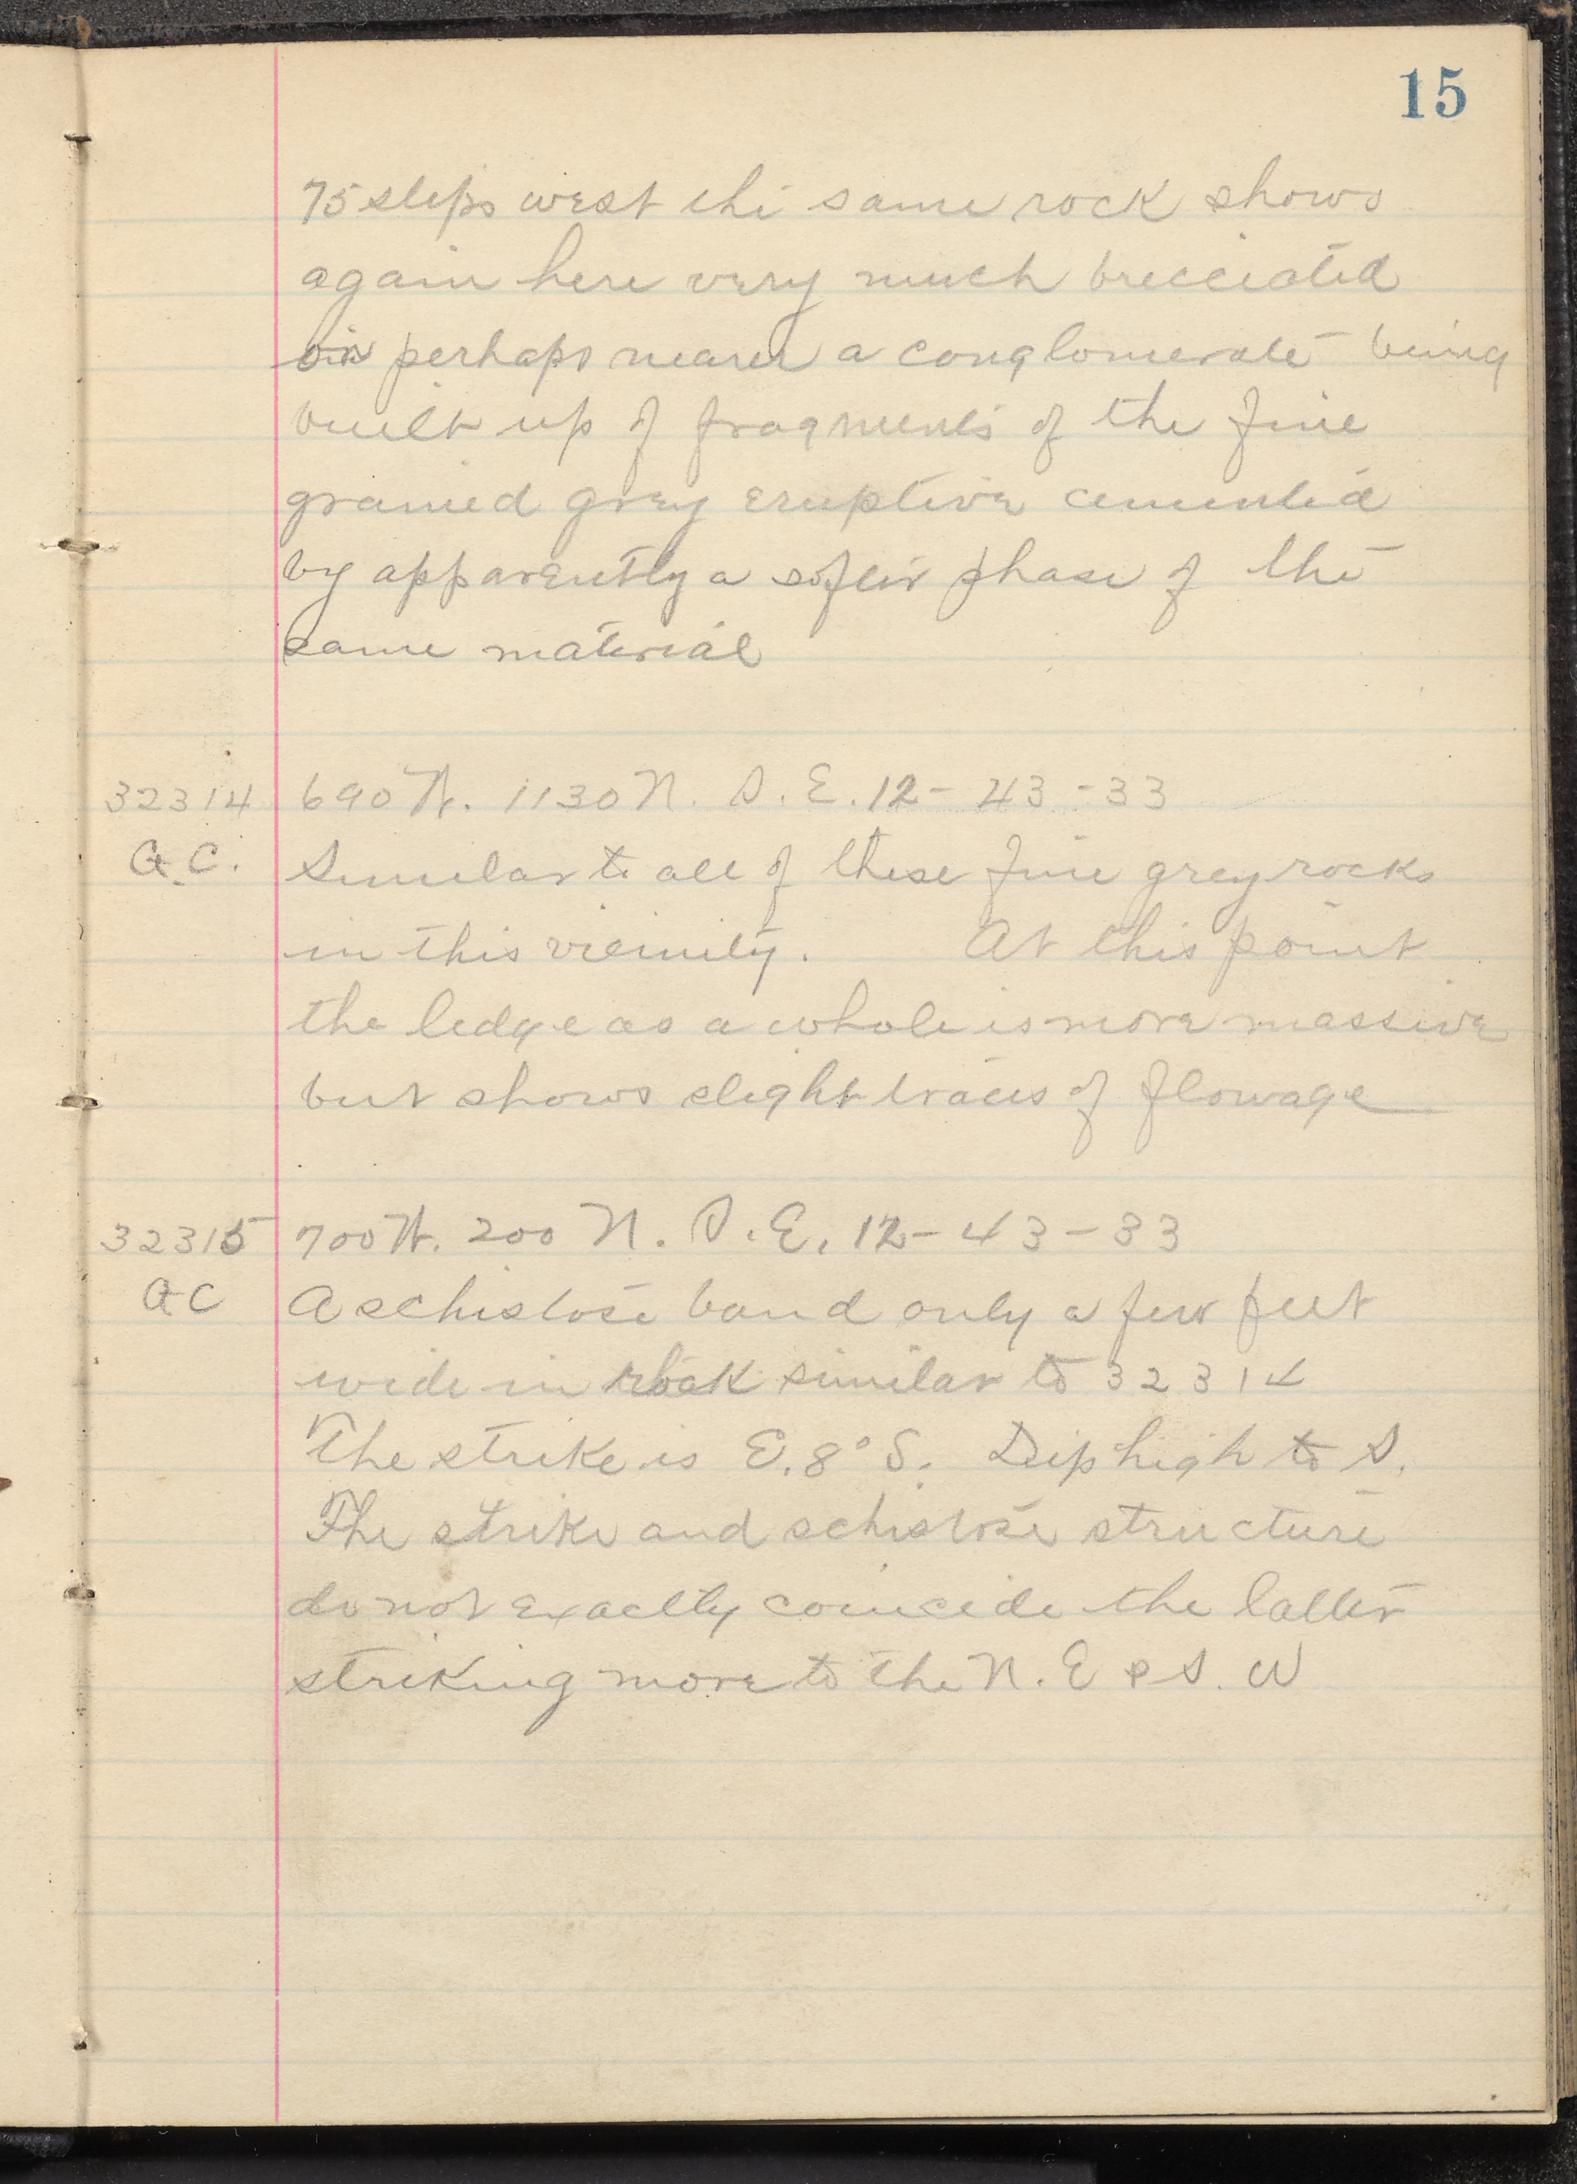 15
75 steps west the same rock shows
again here very much brecciated
or perhaps nearer a conglomerate being
built up of fragments of the fine
grained grey eruptive cemented
by apparently a softer phase of the
same material
32314 690 W. 1130 N. S.E. 12-43-33
A.C. Similar to all of these fine grey rocks
in this vicinity. At this point
the ledge as a whole is more massive
but shows slight traces of flowage
32315 700 W. 200 N. S.E. 12-43-33
A C A schistose band only a few feet
wide in rock similar to 32314
The strike is E. 8° S. Dip high to S.
The strike and schistose structure
do not exactly coincide the latter
striking more to the N.E & S.W